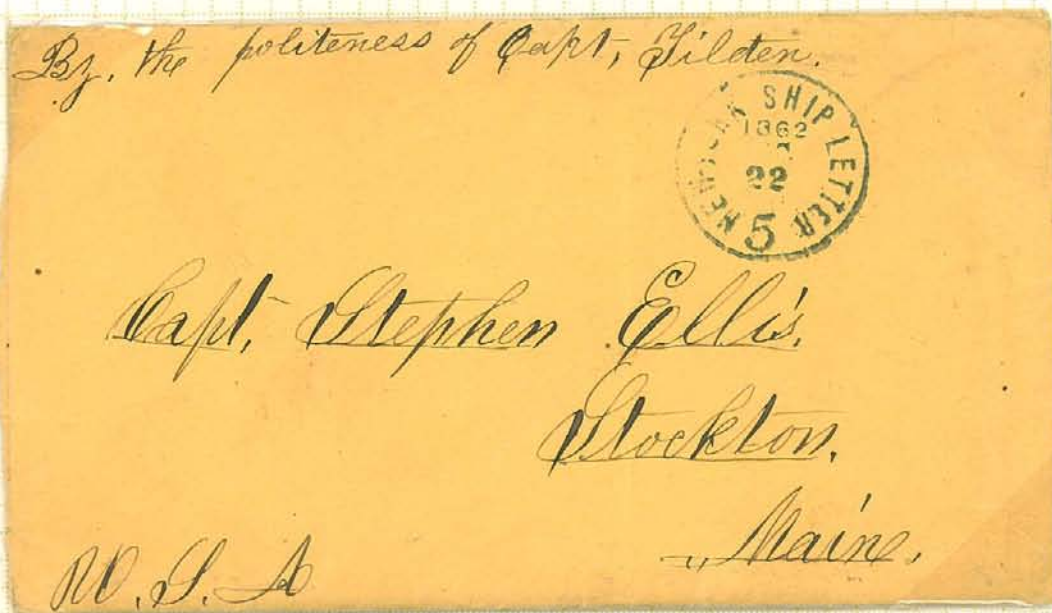 By. the politeness of Capt, Tilden.
NEW YORK SHIP LETTER
1862
22
5
Capt. Stephen Ellis.
Stockton.
Maine.
U.S.A